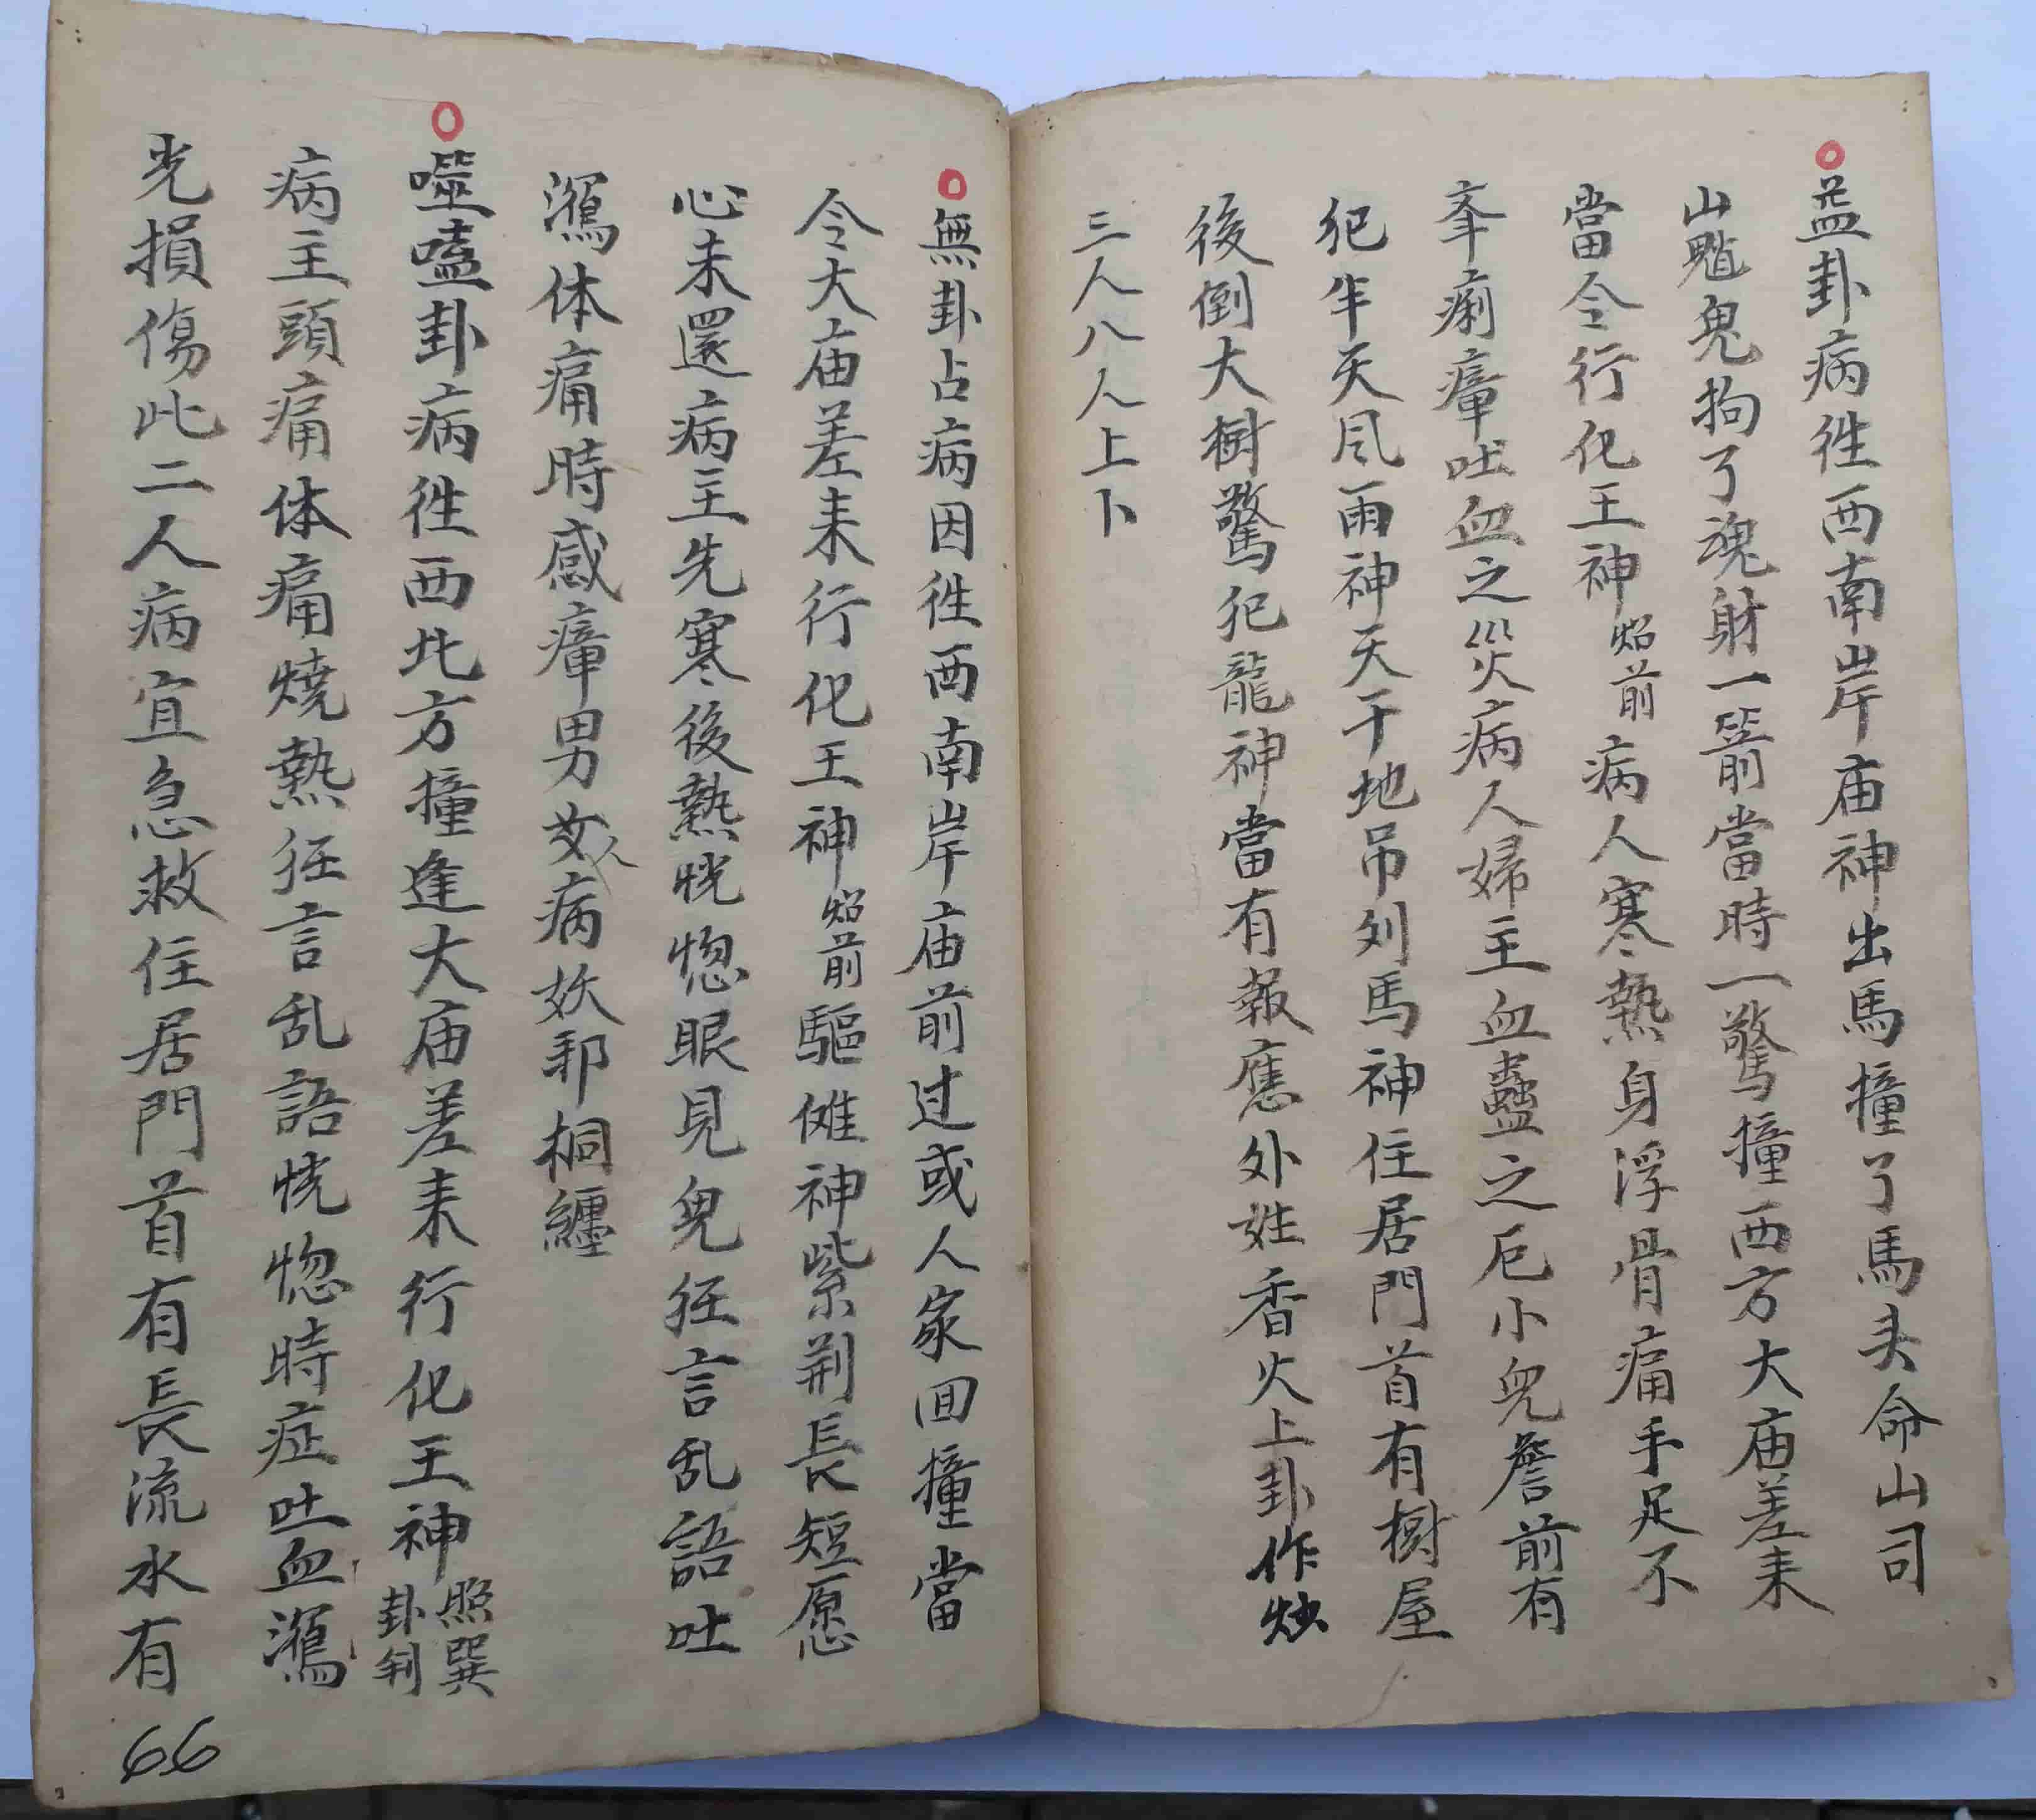 益卦病徃西南岸庙神出馬撞了馬头命山司
山魈鬼拘了魂財一箭當時一驚撞西方大庙差来
當令行化王神炤前病人寒熱身浮骨痛手足不
夆痢瘴吐血之災病人婦主血蠱之厄小皃詹前有
犯牛天风雨神天干地吊列馬神住居門首有樹屋
後倒大樹驚犯龍神當有報應外姓香火上卦作炒
三人八人上卜
無卦占病因徃西南岸庙前过或人家囬撞當
令大庙差来行化王神炤前驅傩神紫荆長短愿
心未還病主先寒後熱恍惚眼見皃狂言乱語吐
瀉体痛時感瘴男女人病妖邪桐纏
噬嗑卦病徃西北方撞逢大庙差来行化王神照巽卦判
病主頭痛体痛燒熱狂言乱語恍惚時症吐血瀉
光損傷此二人病宜急救住居門首有長流水有
66